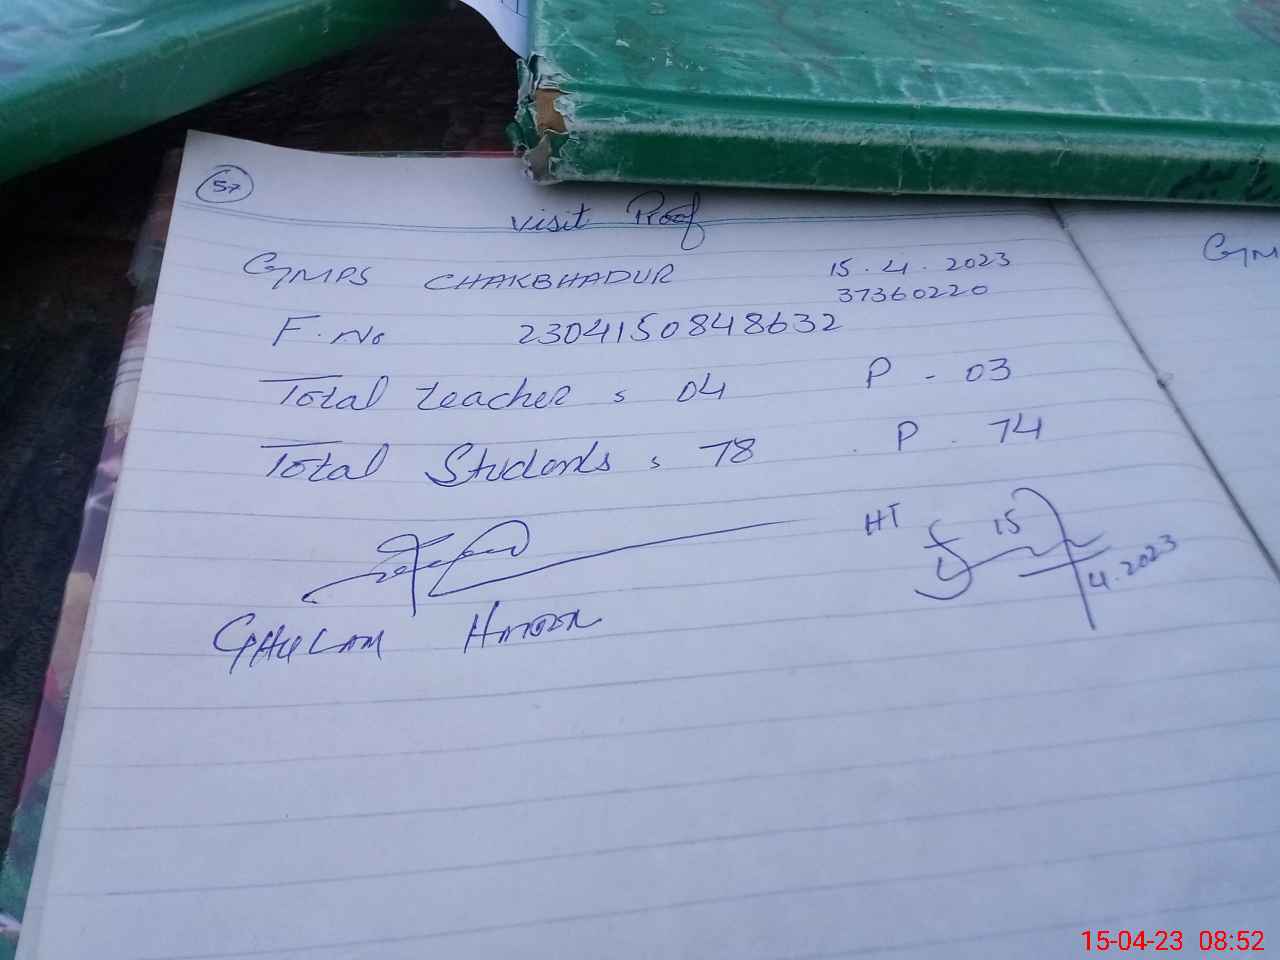 57
visit Proof
GMPS CHAKBHADUR 15.4.2023
37360220
F.No 2304150848632
Total teacher : 04 P - 03
Total Students : 78 . P . 74
HT 15
4.2023
GHULAM
GM
15-04-23 08:52